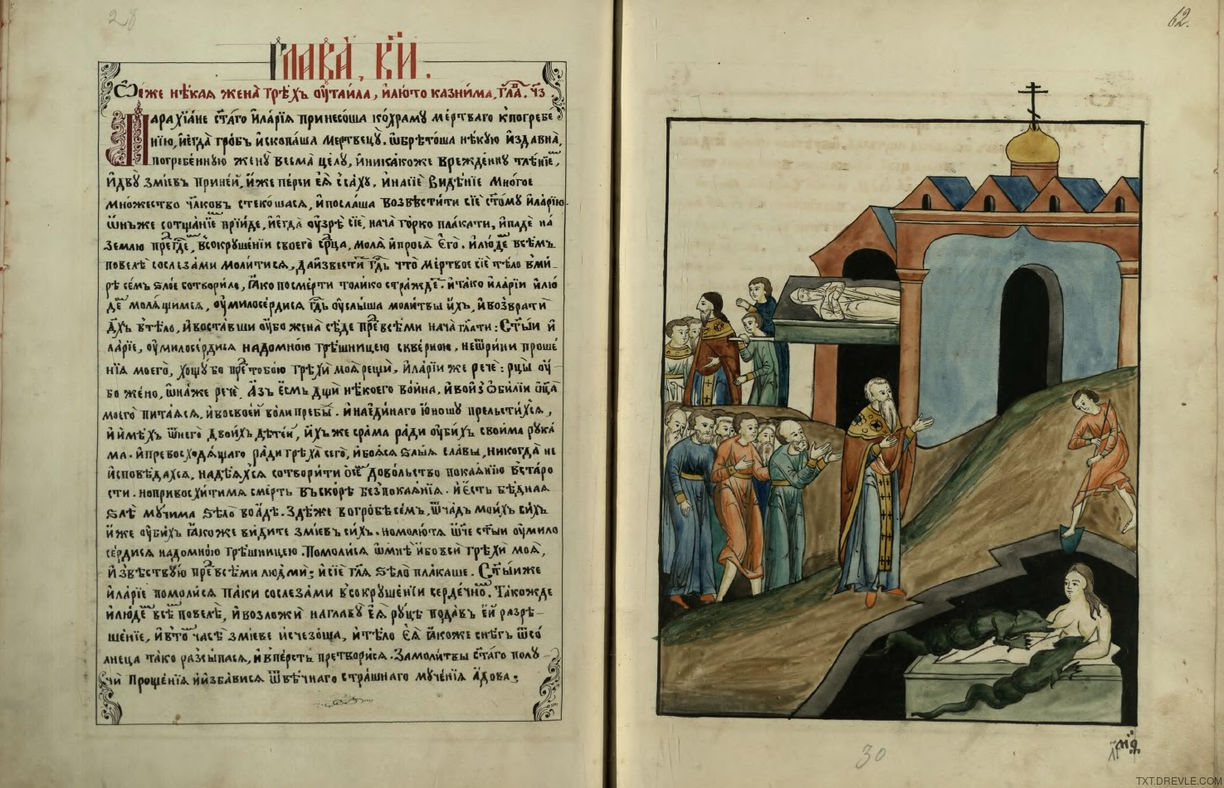 28
62.
Глава, к҃и.
Ѿ еже нѣкая жена грѣхъ ѹтаила, и люто казнима, гла҃. ч҃з
Парахїане ст҃аго иларїя принесоша ко храму мертваго к погребе
нїю, и егда гробъ ископаша мертвецу. ѡбрѣтоша нѣкую издавна,
погребенную жену весма целу, и никакоже врежденну тлѣнїе,
и двꙋ змїевъ при ней, иже перси ея ссахꙋ. и на сїе видѣнїе многое
множество чл҃ковъ стекошася, и послаша возвѣстити сїе ст҃ому иларїю
ѡнъже со тщанїе прїиде, и егда ѹзрѣ сїе, нача горко плакати, и паде на
землю пре гд҃е, в сокрушенїи своего ср҃ца, моля и прося его. и людѐ всѣмъ
повелѣ со слезами молитися, да извести гд҃ь что мертвое сїе тѣло в ми
рѣ семъ ѕлое сотворило, яко по смерти толико стражде. и тако иларїи и лю
де молящимся, ѹмилосердися гд҃ь ѹслыша молитвы ихъ, и возврати
дх҃ъ в тѣло, и воставши ѹбо жена сѣде пре всѣми нача гл҃ати: Ст҃ыи и
ларїе, ѹмилосердися надо мною грѣшницею скверною, не ѿрини проше
нїя моего, хощꙋ бо пре тобою грѣхи моя рещи, иларїи же рече: рцы ѹ
бо жено, ѡна же рече. Азъ есмь дщи нѣкоего воина, и во изобилїи ѡц҃а
моего питаяся, и во своей воли пребы. и на единаго юношу прельстихся,
и имѣхъ ѿ него двоихъ дѣтеи, ихъ же срама ради ѹбихъ своима рꙋка
ма. и превосходящаго ради грѣха сего, и бояся ѕлыя славы, никогда не
исповѣдахся, надѣяхся сотворити довольство покаянїю в старо
сти. но привосхити мя смерть въ скорѣ без покаянїя. и есть бѣдная
ѕлѣ мучима ѕѣло во адѣ. Здѣ же во гробѣ семъ, ѿ чадъ моихъ сихъ
иже ѹбихъ якоже видите змїевъ сихъ. но молютя ѿче ст҃ыи ѹмило
сердися надо мною грѣшницею. Помолися ѡ мнѣ ибо вся грѣхи моя,
извѣствую пре всѣми людми; и сїе гл҃я ѕѣло плакаше. Ст҃ыи же
иларїе помолися паки со слезами в сокрушенїи сердечно. Такожде
и людѐ всѣ повелѣ, и возложи на главꙋ ея рꙋцѣ подавъ ей разрѣ
шенїе, и в то часѣ змїеве исчезоша, и тѣло ея якоже снѣгъ ѿ со
лнеца тако разсыпася, и в персть претворися. За молитвы ст҃аго полꙋ
чи прощенїя и избавися ѿ вѣчнаго страшнаго мученїя адова;
30
TXT.DREVLE.COM